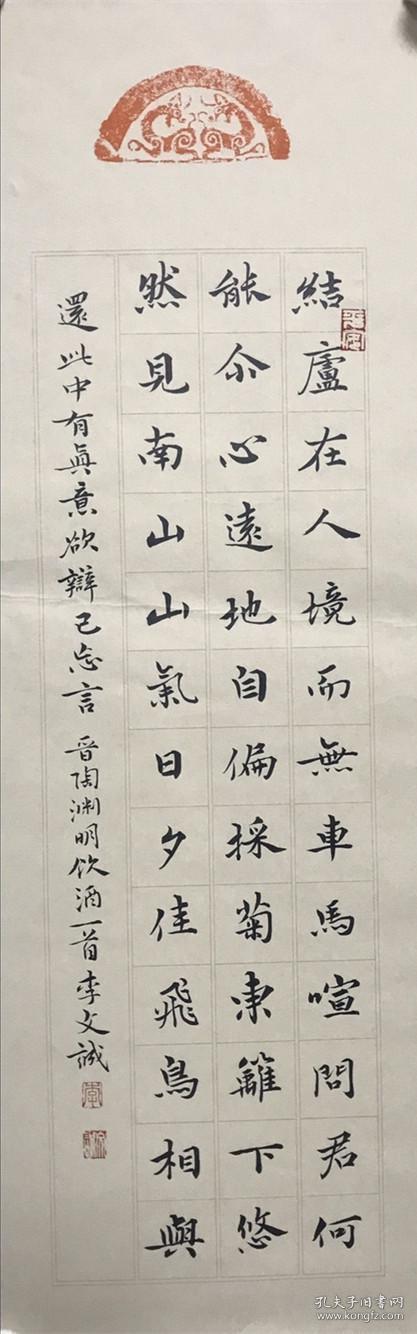 結廬在人境而無車馬喧問君何
能尒心遠地自偏採菊東籬下悠
然見南山山氣日夕佳飛鳥相與
還此中有眞意欲辯已忘言 晉陶渊明飲酒一首李文誠
孔夫子旧书网
www.kongfz.com